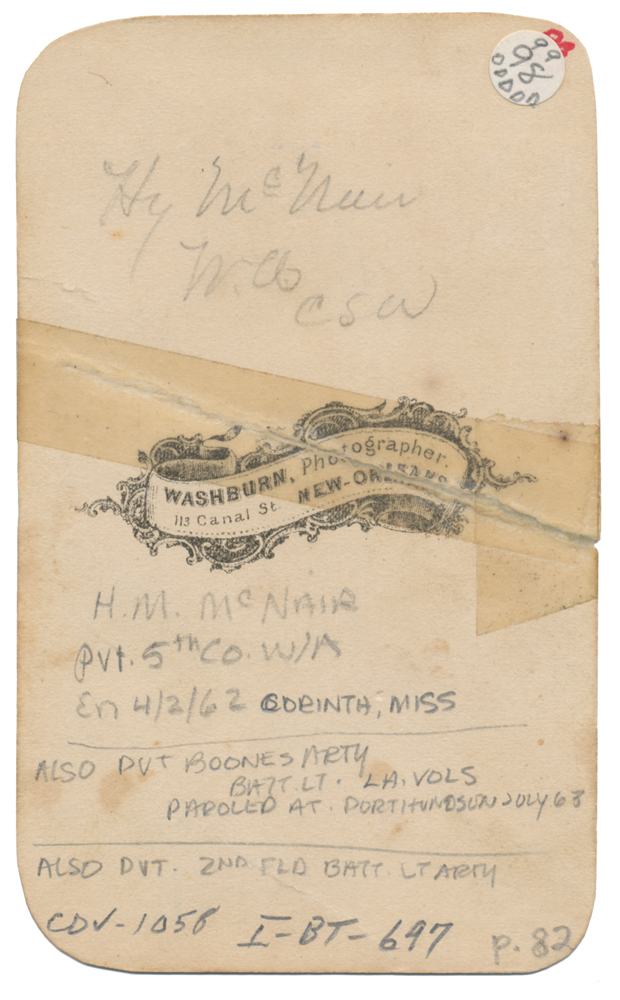 99
98
Hy McNair
W.A.
CSA
WASHBURN, Photographer.
113 Canal St. NEW-ORLEANS
H.M. McNAIR
Pvt. 5th Co. W/A
En 4/2/62 CORINTH, MISS
ALSO PVT BOONES ARTY
BATT. LT. LA. VOLS
PAROLED AT. PORT HUNDSUN JULY 63
ALSO PVT. 2ND FLD BATT. LT ARTY
CDV-1058 I-BT-697 p. 82